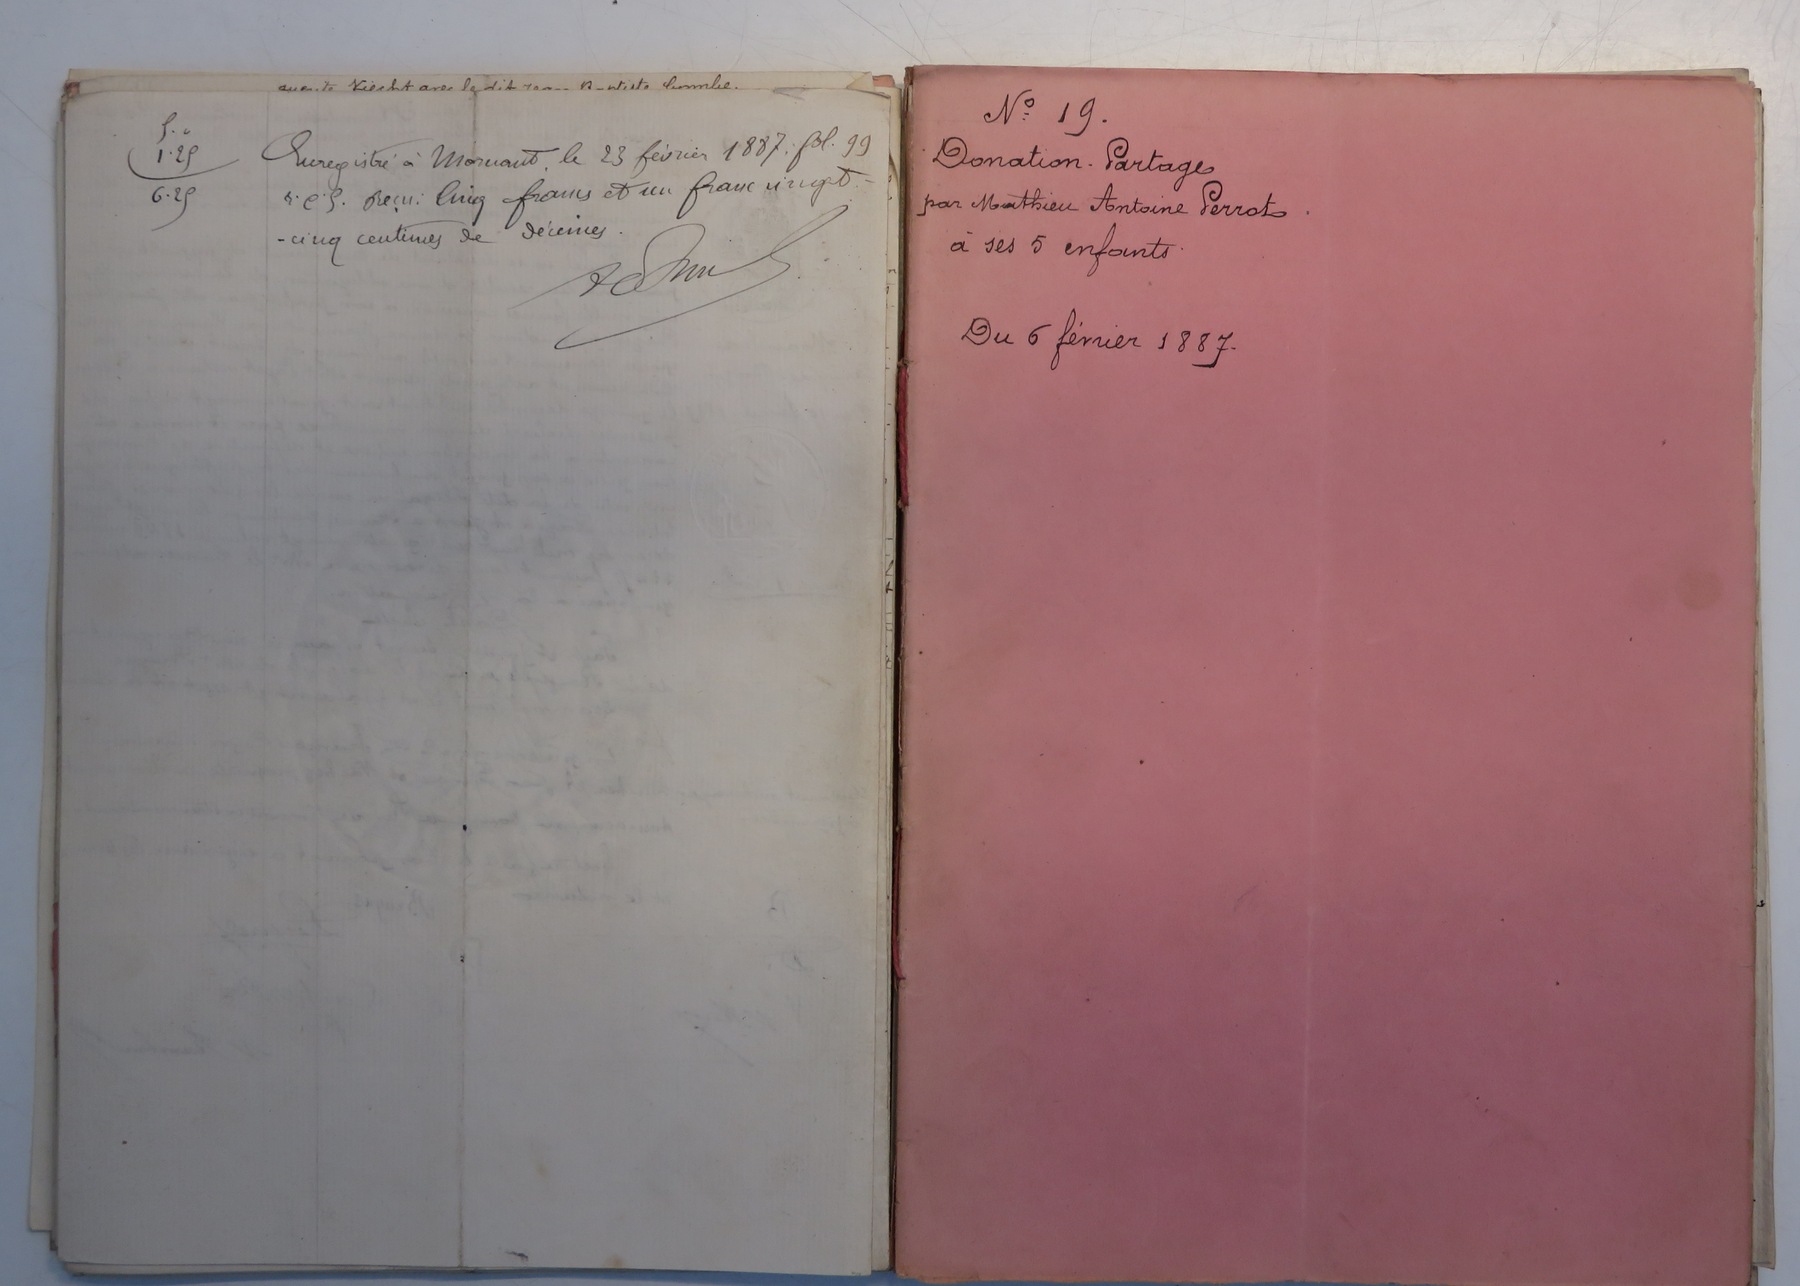 avec le dit Jean Baptiste
5."
1.25
6.25
Enregistré à Mornant, le 23 février 1887. fol. 99
r. c. 5. Reçu: Cinq francs et un franc vingt-
-cinq centimes de décimes.
N° 19.
Donation-Partage
par Mathieu Antoine Perrot.
à ses 5 enfants.
Du 6 février 1887.